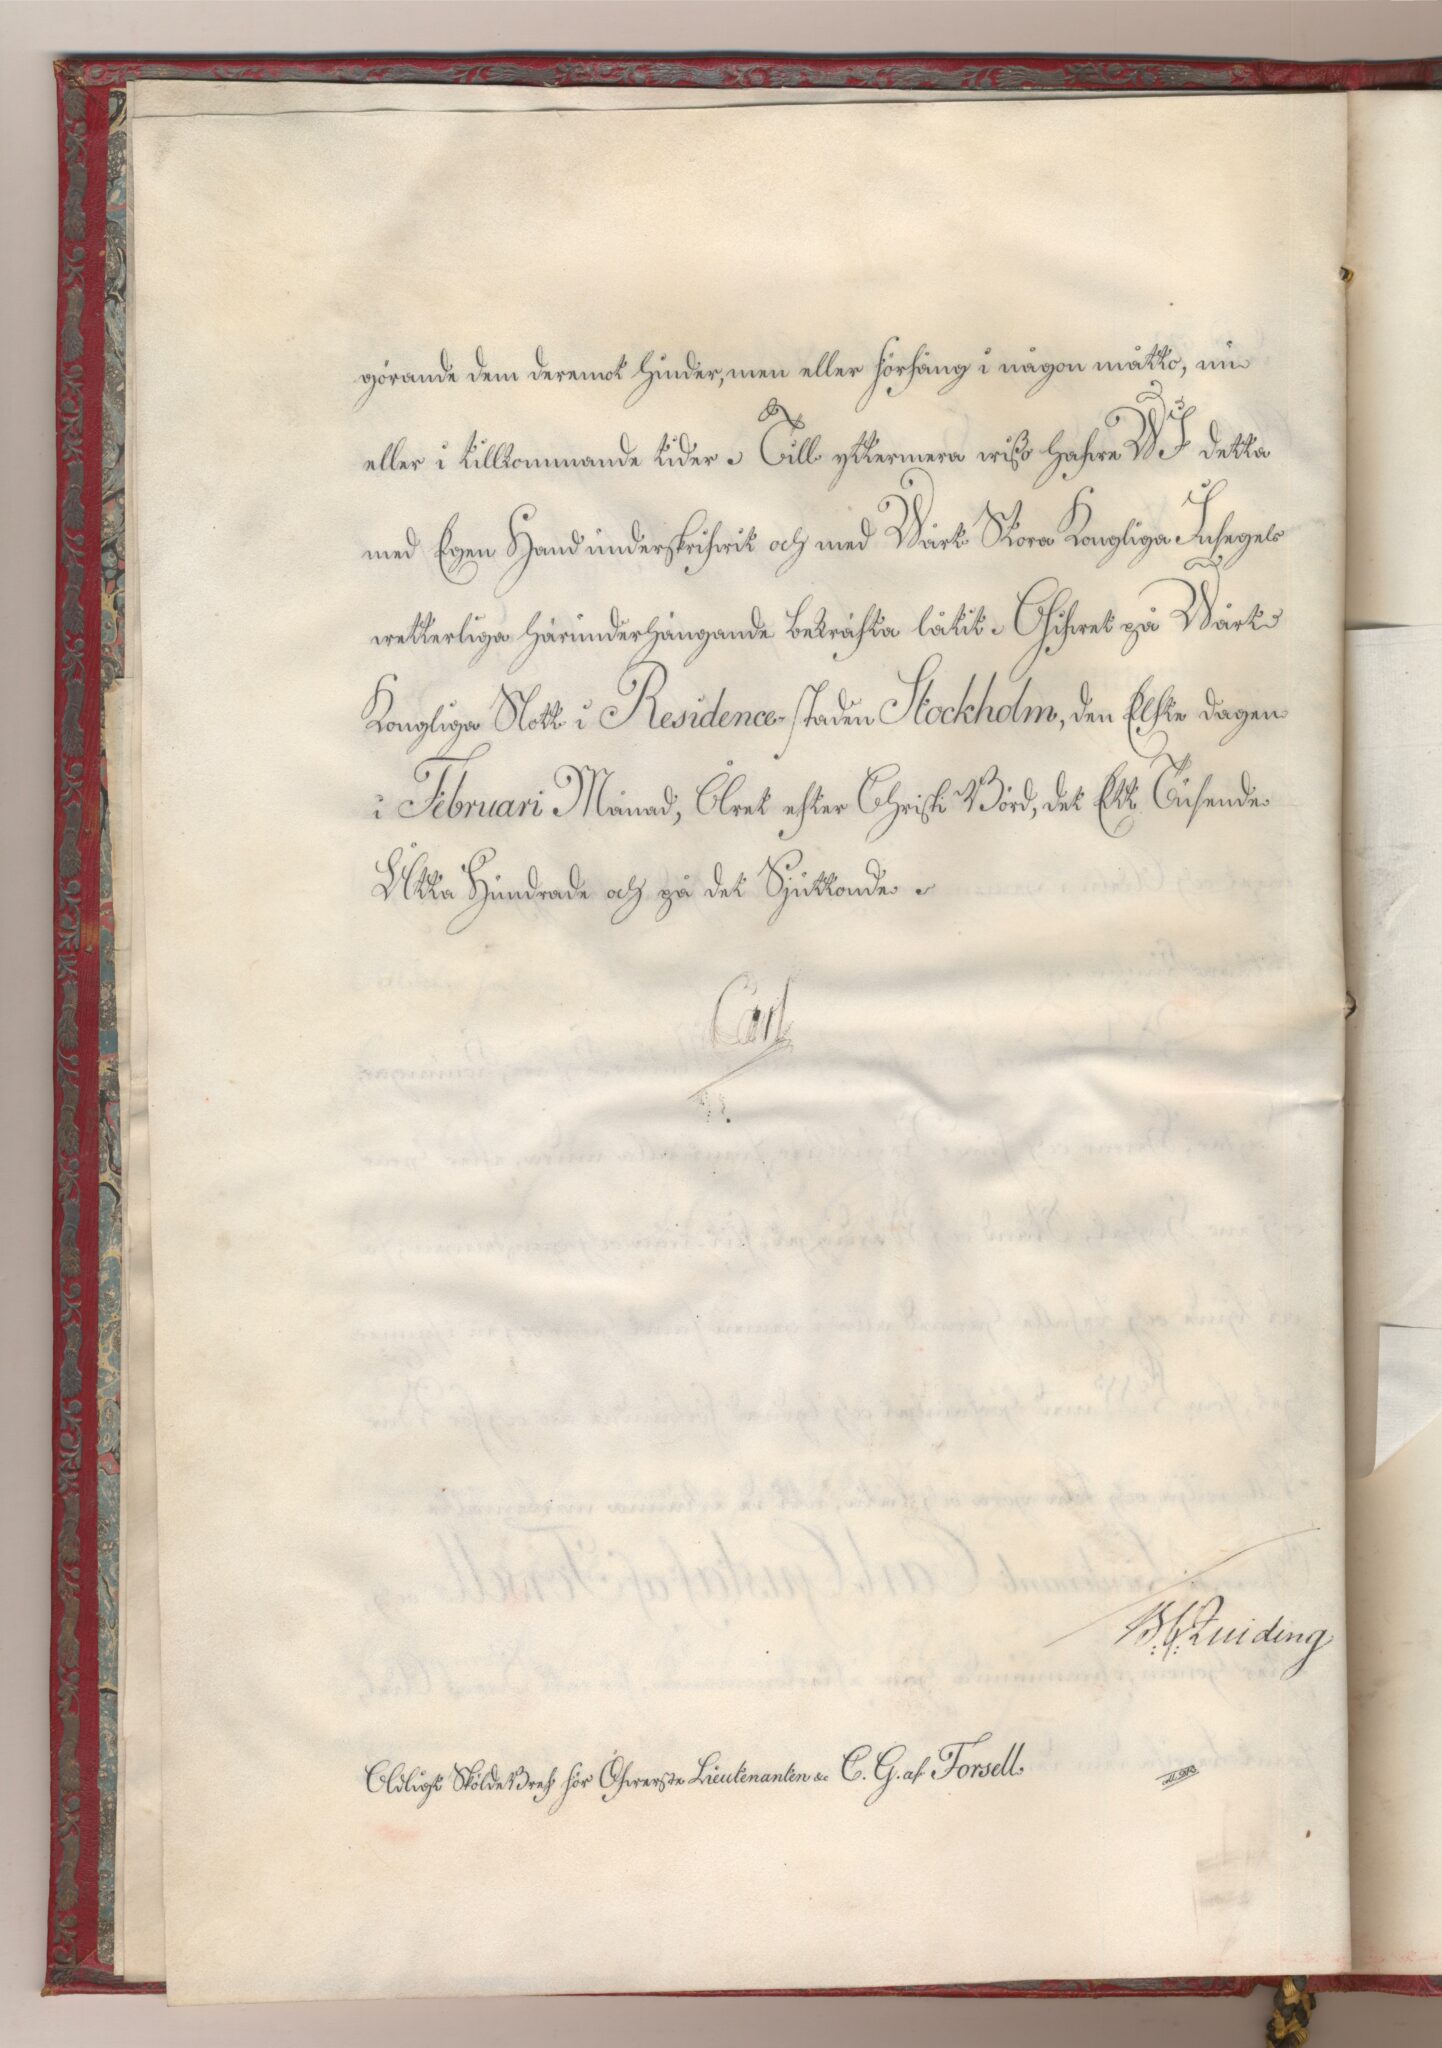 görande dem deremot hinder, men eller förfång i någon måtto, nu
eller i tillkommande tider. Till yttermera wißo hafwe WJ detta
med Egen Hand underskrifwit och med Wårt Stora Kongliga Insegel
wetterliga härunderhängande bekräfta låtit. Gifwet på Wårt
Kongliga Slott i Residence-staden Stockholm, den Elfte dagen
i Februari Månad, Året efter Christi Börd, det Ett Tusende
Åtta Hundrade och på det Sjuttonde.
Carl
Quiding
Adligt Sköldebref för Öfwerste Lieutenanten &c C. G. af Forsell.